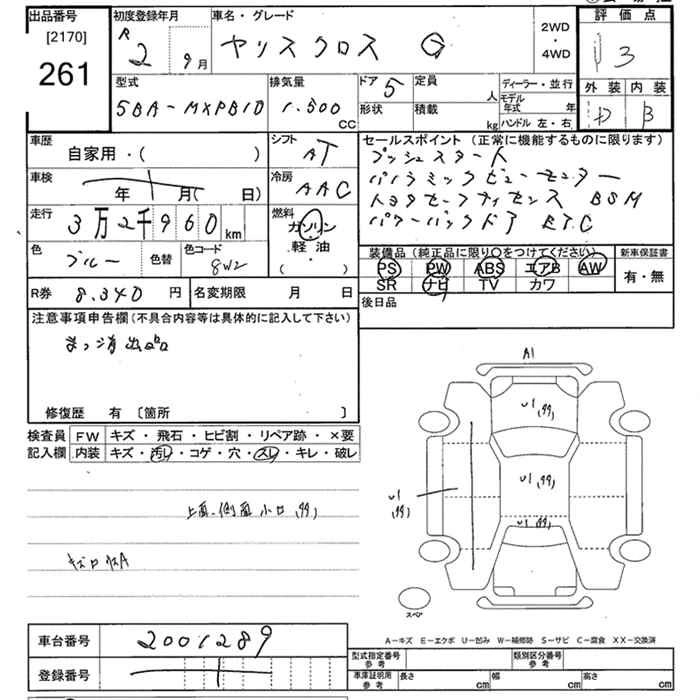 出品番号 初度登録年月 車名・グレード 評価点
[2170] R 2 9月 ヤリスクロス G 2WD・4WD 3
261
型式 排気量 ドア 5 定員 人 ディーラー・並行 外装 内装
5BA-MXPB10 1.500 CC 形状 積載 kg モデル年式 年 ハンドル 左・右 B
車歴 シフト AT セールスポイント (正常に機能するものに限ります)
自家用・( ) プッシュスタート
車検 年 月( 日) 冷房 AAC パノラミックビューモニター
トヨタセーフティセンス BSM
走行 3万2千960km 燃料 ガソリン・軽油・( ) パワーバックドア ETC
色 ブルー 色替 色コード 8W2 装備品 (純正品に限り○をつけてください) 新車保証書
PS PW ABS エアB AW 有・無
R券 8.340円 名変期限 月 日 SR ナビ TV カワ
後日品
注意事項申告欄(不具合内容等は具体的に記入して下さい)
修復歴 有 [箇所 ]
検査員記入欄 FW キズ・飛石・ヒビ割・リペア跡・×要
内装 キズ・汚レ・コゲ・穴・スレ・キレ・破レ
A1
U1
U1
U1
上面、側面 小ロ
スペア
A-キズ E-エクボ U-凹み W-補修跡 S-サビ C-腐食 XX-交換済
車台番号 2001289 型式指定番号参考 類別区分番号参考
登録番号 車庫証明用参考 長さ cm 幅 cm 高さ cm